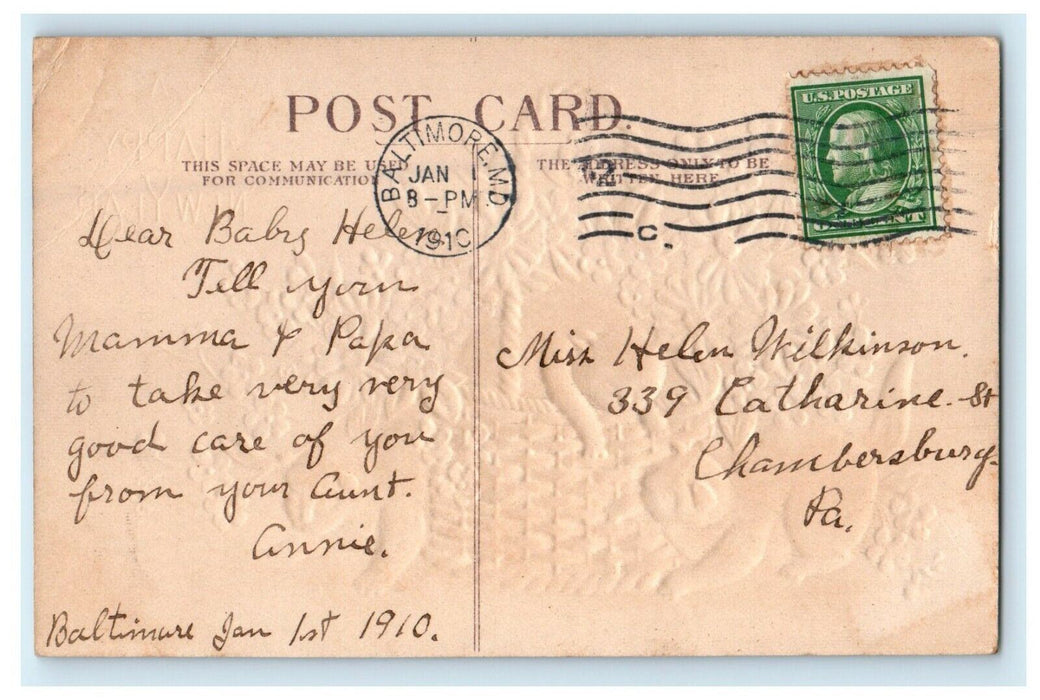 POST CARD.
THIS SPACE MAY BE USED
FOR COMMUNICATION
THE ADDRESS ONLY TO BE
WRITTEN HERE
U.S. POSTAGE
BALTIMORE, MD.
JAN 1
8-PM
1910
C.
Dear Baby Helen
Tell your
Mamma & Papa
to take very very
good care of you
from your Aunt.
Annie.
Baltimore Jan 1st 1910.
Miss Helen Wilkinson.
339 Catharine St
Chambersburg
Pa.